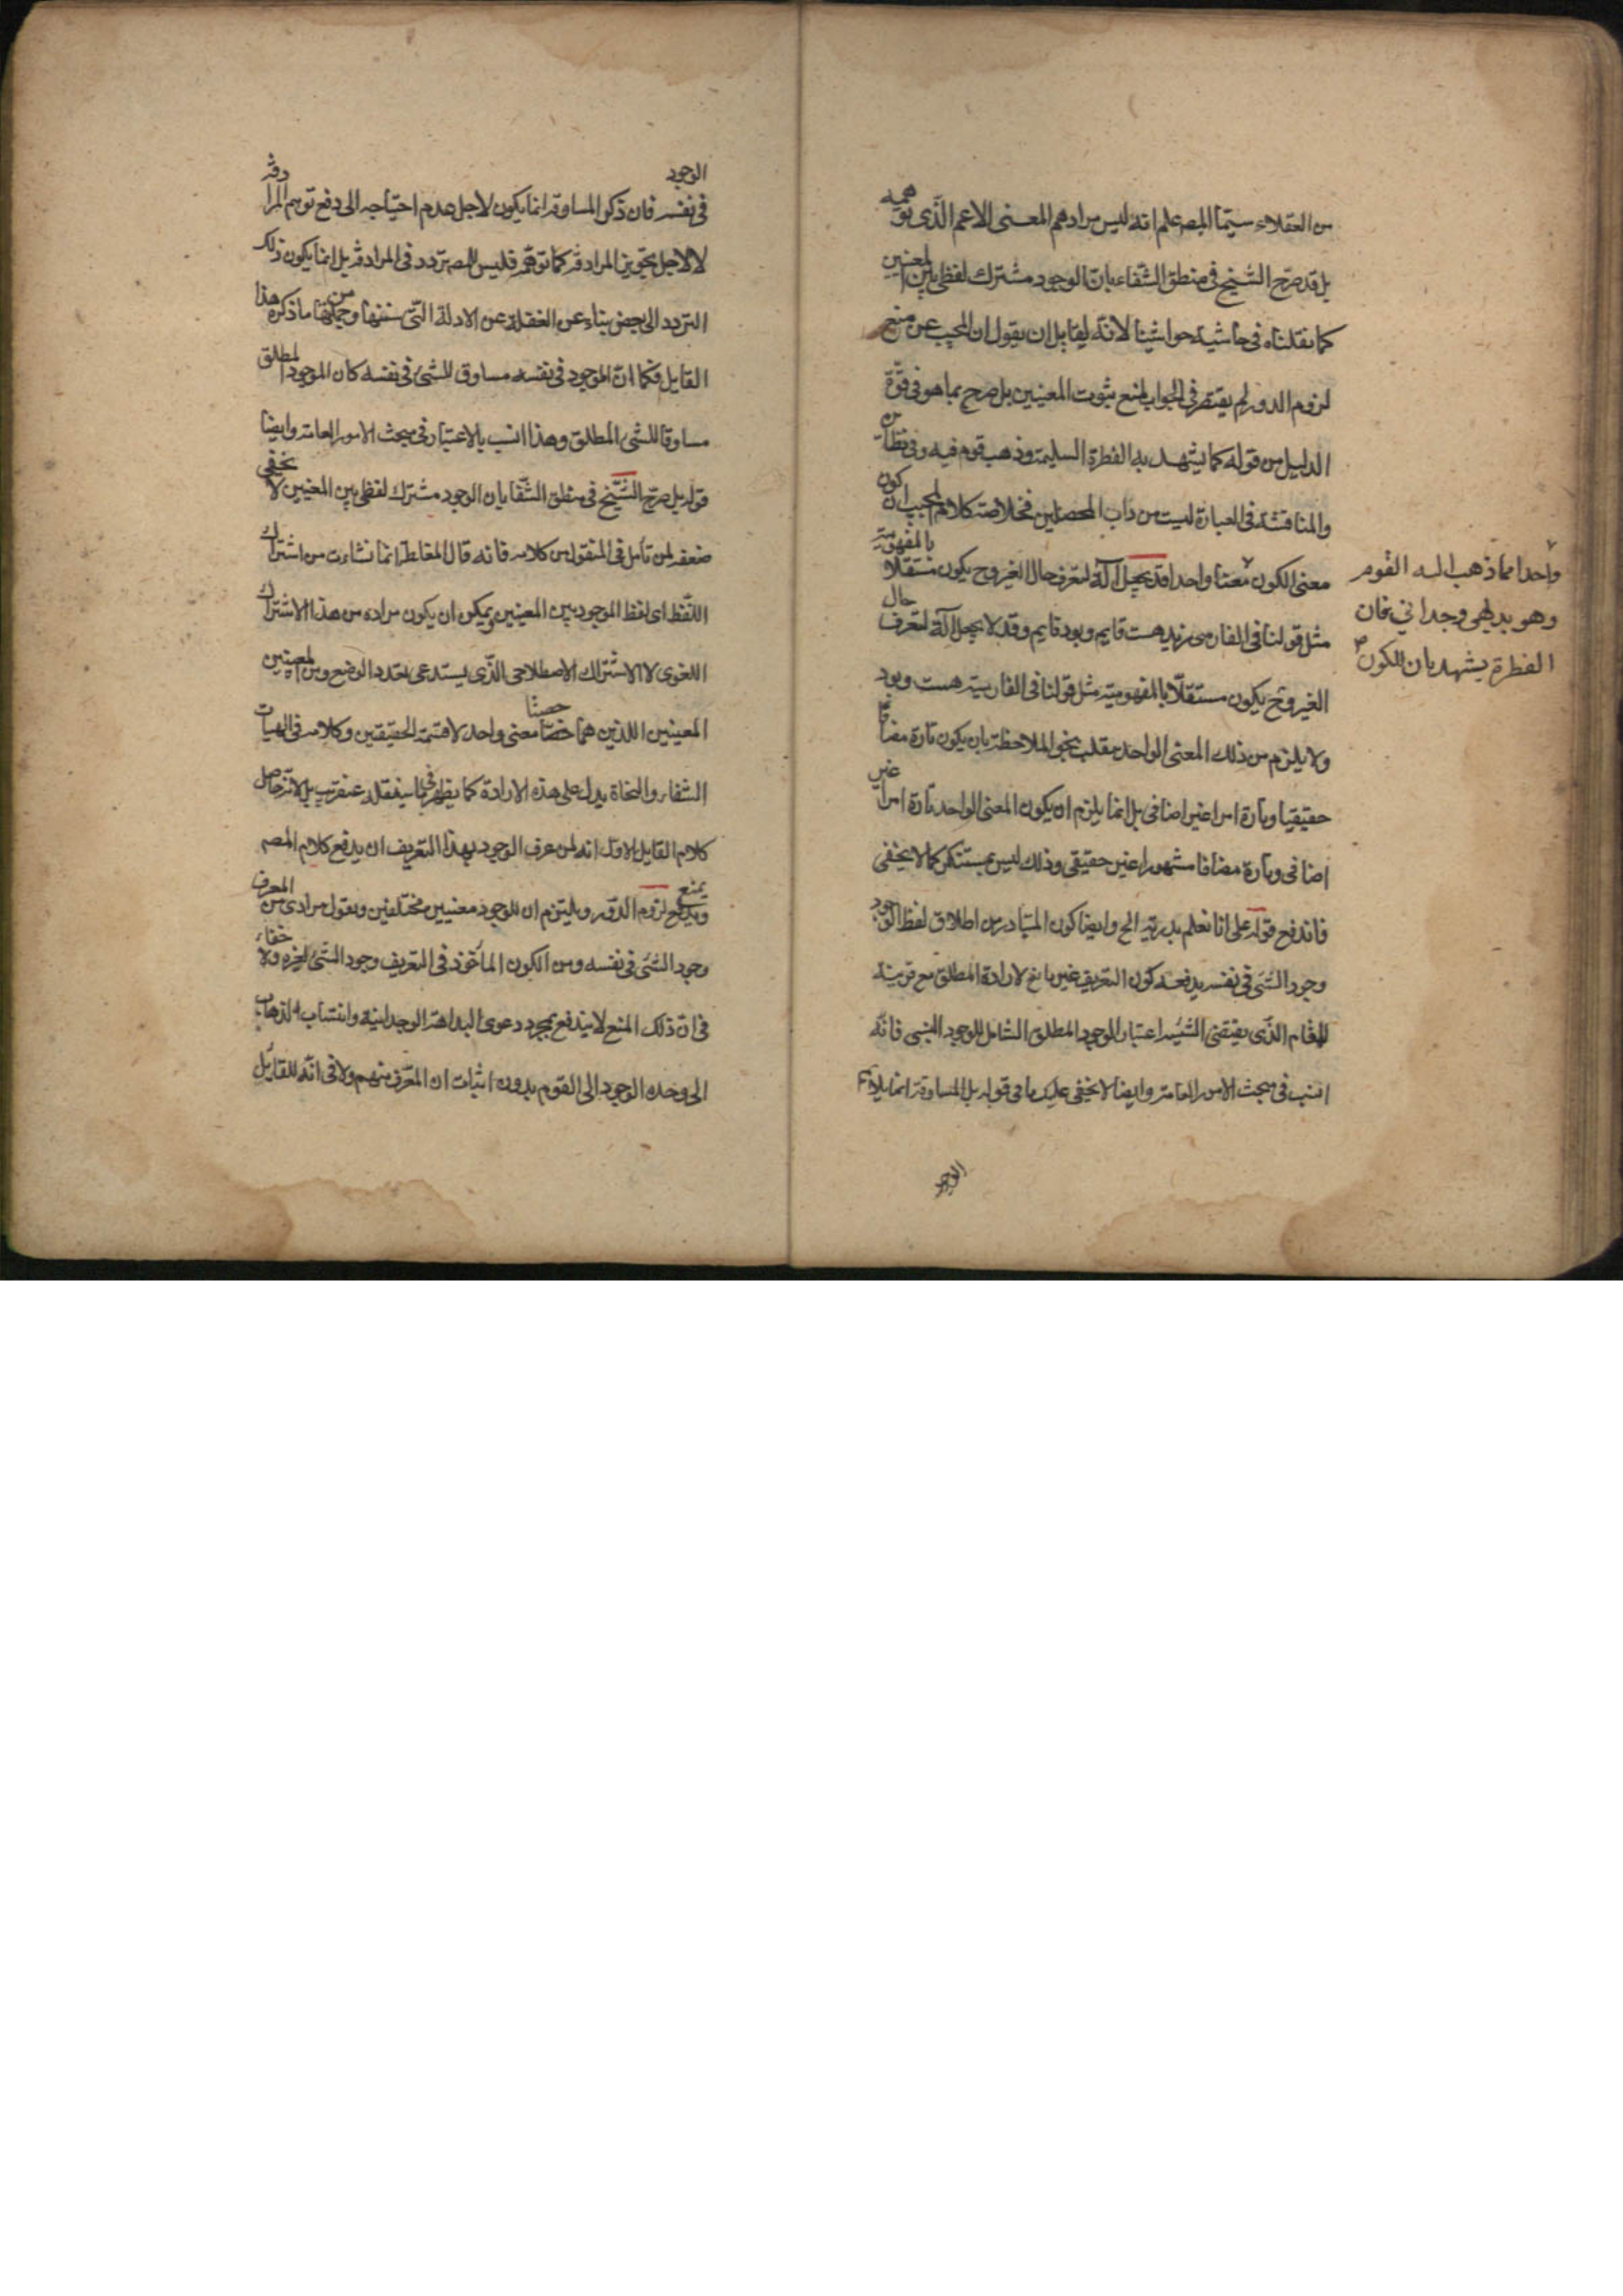 من العقلاء سيما المص علم انه ليس مرادهم المعنى الاعم الذى توهمه
بل قد صرح الشيخ فى منطق الشفاء بان الوجود مشترك لفظى بين المعنيين
كما نقلناه فى حاشية حواشينا لانه لقايل ان يقول ان المجيب عن منع
لزوم الدور لم يقتصر فى الجواب بمنع ثبوت المعنيين بل صرح بما هو فى قوة
الدليل من قوله كما يشهد به الفطرة السليمة وذهب قوم فيه وفى نظائره
والمناقشة فى العبارة ليست من داب المحصلين فخلاصة كلام المجيب ان كون
معنى الكون معنا واحدا قد يجعل آلة لتعرف حال الغير وح يكون مستقلا بالمفهومية
واحدا مما ذهب اليه القوم
وهو بديهى وجدانى فان
الفطرة يشهد بان للكون
مثل قولنا فى الفارسى زيد هست قايم وبود قايم وقد لا يجعل آلة لتعرف حال
الغير وح يكون مستقلا بالمفهومية مثل قولنا فى الفارسية هست وبود
ولا يلزم من ذلك المعنى الواحد مقلب بنحو الملاحظة بان يكون تارة مضافا
حقيقيا وتارة امرا غير اضافى بل انما يلزم ان يكون المعنى الواحد تارة امرا غير
اضافى وتارة مضافا مشهورا غير حقيقى وذلك ليس بمستنكر كما لا يخفى
فاندفع قوله على انا نعلم بديهة الخ وايضا كون المتبادر من اطلاق لفظ الوجود
وجود الشئ فى نفسه يدفعه كون التعريف غير مانع لارادة المطلق مع قرينة
المقام الذى يقتضى الشئ اعتبار الوجود المطلق الشامل للوجود النسبى فانه
انسب فى مبحث الامور العامة وايضا لا يخفى عليك ما فى قوله بل المساوقة انما يلائم
الوجود
الوجود
فى نفسه فان ذكر المساوقة انما يكون لاجل عدم احتياجه الى دفع توهم المرادفة
لا لاجل تجويز المرادفة كما توهم فليس للمص تردد فى المرادفة بل انما يكون ذلك
التردد الى بعض بناء عن الغفلة عن الادلة التى سننها ومن جملتها ما ذكره هذا
القايل فكما ان الموجود فى نفسه مساوق للشئ فى نفسه كان الموجود المطلق
مساوقا للشئ المطلق وهذا انسب بالاعتبار فى مبحث الامور العامة وايضا
قوله بل صرح الشيخ فى منطق الشفا بان الوجود مشترك لفظى بين المعنيين لا يخفى
ضعفه لمن تامل فى المنقول من كلامه فانه قال المغالطة انما نشاءت من اشتراك
اللفظ اى لفظ الموجود بين المعنيين ويمكن ان يكون مراده من هذا الاشتراك
اللغوى لا الاشتراك الاصطلاحى الذى يستدعى تعدد الوضع ومن المعنيين
المعنيين اللذين هما حصتا معنى واحد لا قسمة الحقيقتين وكلامه فى الهيات
الشفاء والنجاة يدل على هذه الارادة كما يظهر فيما سينقله عنقريب بل لانه حاصل
كلام القايل الاول انه لمن عرف الوجود بهذا التعريف ان يدفع كلام المص
ويمنع لزوم الدور ويلتزم ان للوجود معنيين مختلفين ويقول مرادى من المعرف
وجود الشئ فى نفسه ومن الكون الماخوذ فى التعريف وجود الشئ لغيره ولا خفاء
فى ان ذلك المنع لا يندفع بمجرد دعوى البداهة الوجدانية وانتساب الذهاب
الى وحدة الوجود الى القوم بدون اثبات ان المعرف منهم ولا فى انه للقايل